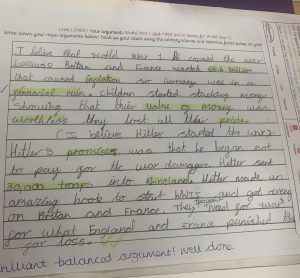 CHALLENGE! Your argument: World War I and Hitler were to blame for World War II.
Write down your main arguments below. Back up your claim using the primary sources and learned facts
I believe that world war 1 caused the war
because Britan and France wanted £6.6 billion
that caused inflation so Germany was in a
financial ruin children started stacking money
showing that their value of money was
worthless they lost all their pride.
(I believe Hitler started the war)
Hitler's promises was that he began not
to pay for the war damages. Hitler sent
30,000 troops into Rhineland. Hitler made an
amazing book to start WWII and get revenge
on Britan and France. They "need for war"
for what England and France punished
for loss.
brilliant balanced argument! Well done.